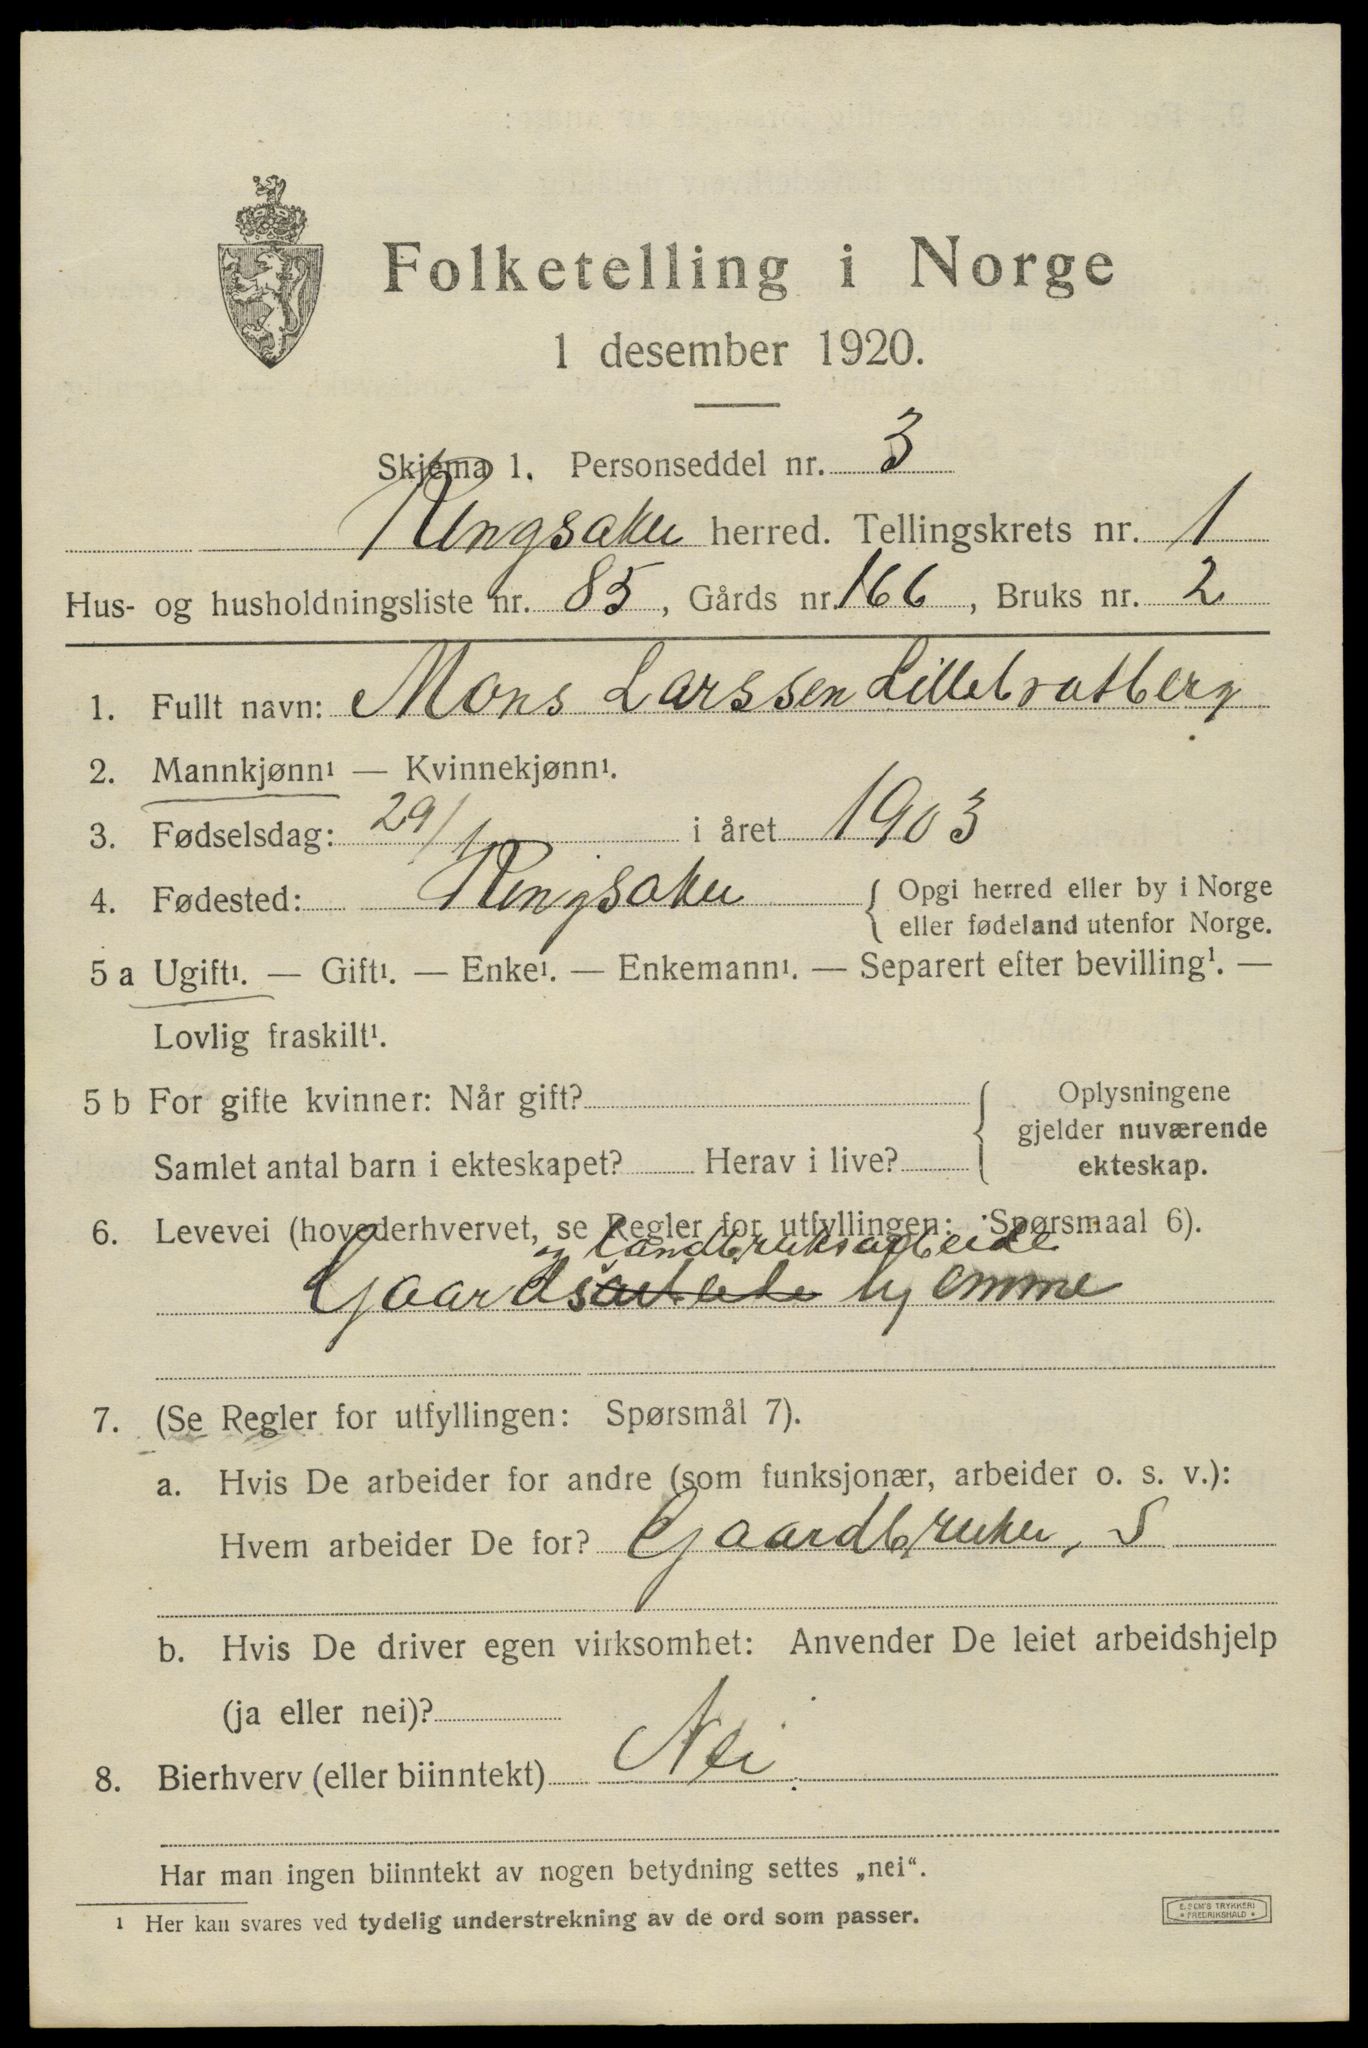 Folketelling i Norge
1 desember 1920.
Skjema 1. Personseddel nr. 3
Ringsaker herred. Tellingskrets nr. 1
Hus- og husholdningsliste nr. 85, Gårds nr. 166, Bruks nr. 2
1. Fullt navn: Mons Larssen Lillebratberg
2. Mannkjønn¹ — Kvinnekjønn¹.
3. Fødselsdag: 29/1 i året 1903
4. Fødested: Ringsaker { Opgi herred eller by i Norge
eller fødeland utenfor Norge.
5 a Ugift¹. — Gift¹. — Enke¹. — Enkemann¹. — Separert efter bevilling¹. —
Lovlig fraskilt¹.
5 b For gifte kvinner: Når gift? { Oplysningene
gjelder nuværende
Samlet antal barn i ekteskapet? Herav i live? ekteskap.
6. Levevei (hovederhvervet, se Regler for utfyllingen: Spørsmaal 6).
og landbruksarbeide
Gaardsarbeide hjemme
7. (Se Regler for utfyllingen: Spørsmål 7).
a. Hvis De arbeider for andre (som funksjonær, arbeider o. s. v.):
Hvem arbeider De for? Gaardbruker, S
b. Hvis De driver egen virksomhet: Anvender De leiet arbeidshjelp
(ja eller nei)?
8. Bierhverv (eller biinntekt) Nei.
Har man ingen biinntekt av nogen betydning settes „nei“.
¹ Her kan svares ved tydelig understrekning av de ord som passer.
E. SEM'S TRYKKERI
* FREDRIKSHALD *